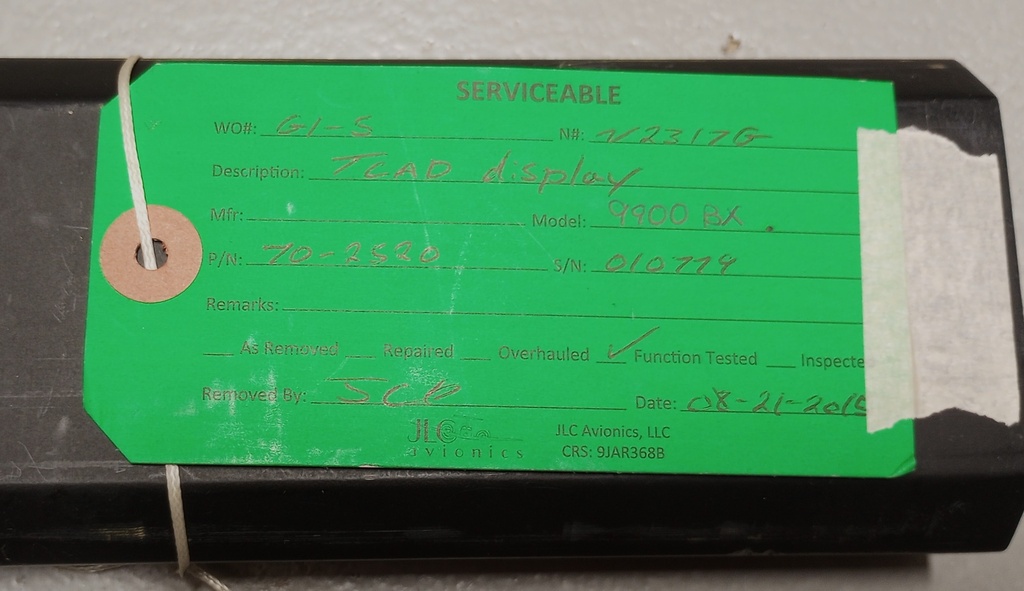 SERVICEABLE
WO#: GI-S N#: N2317G
Description: TCAD display
Mfr: Model: 9900 BX.
P/N: 70-2520 S/N: 010779
Remarks:
As Removed Repaired Overhauled ✓ Function Tested Inspecte
Removed By: JCD Date: 08-21-2015
JLC avionics JLC Avionics, LLC
CRS: 9JAR368B